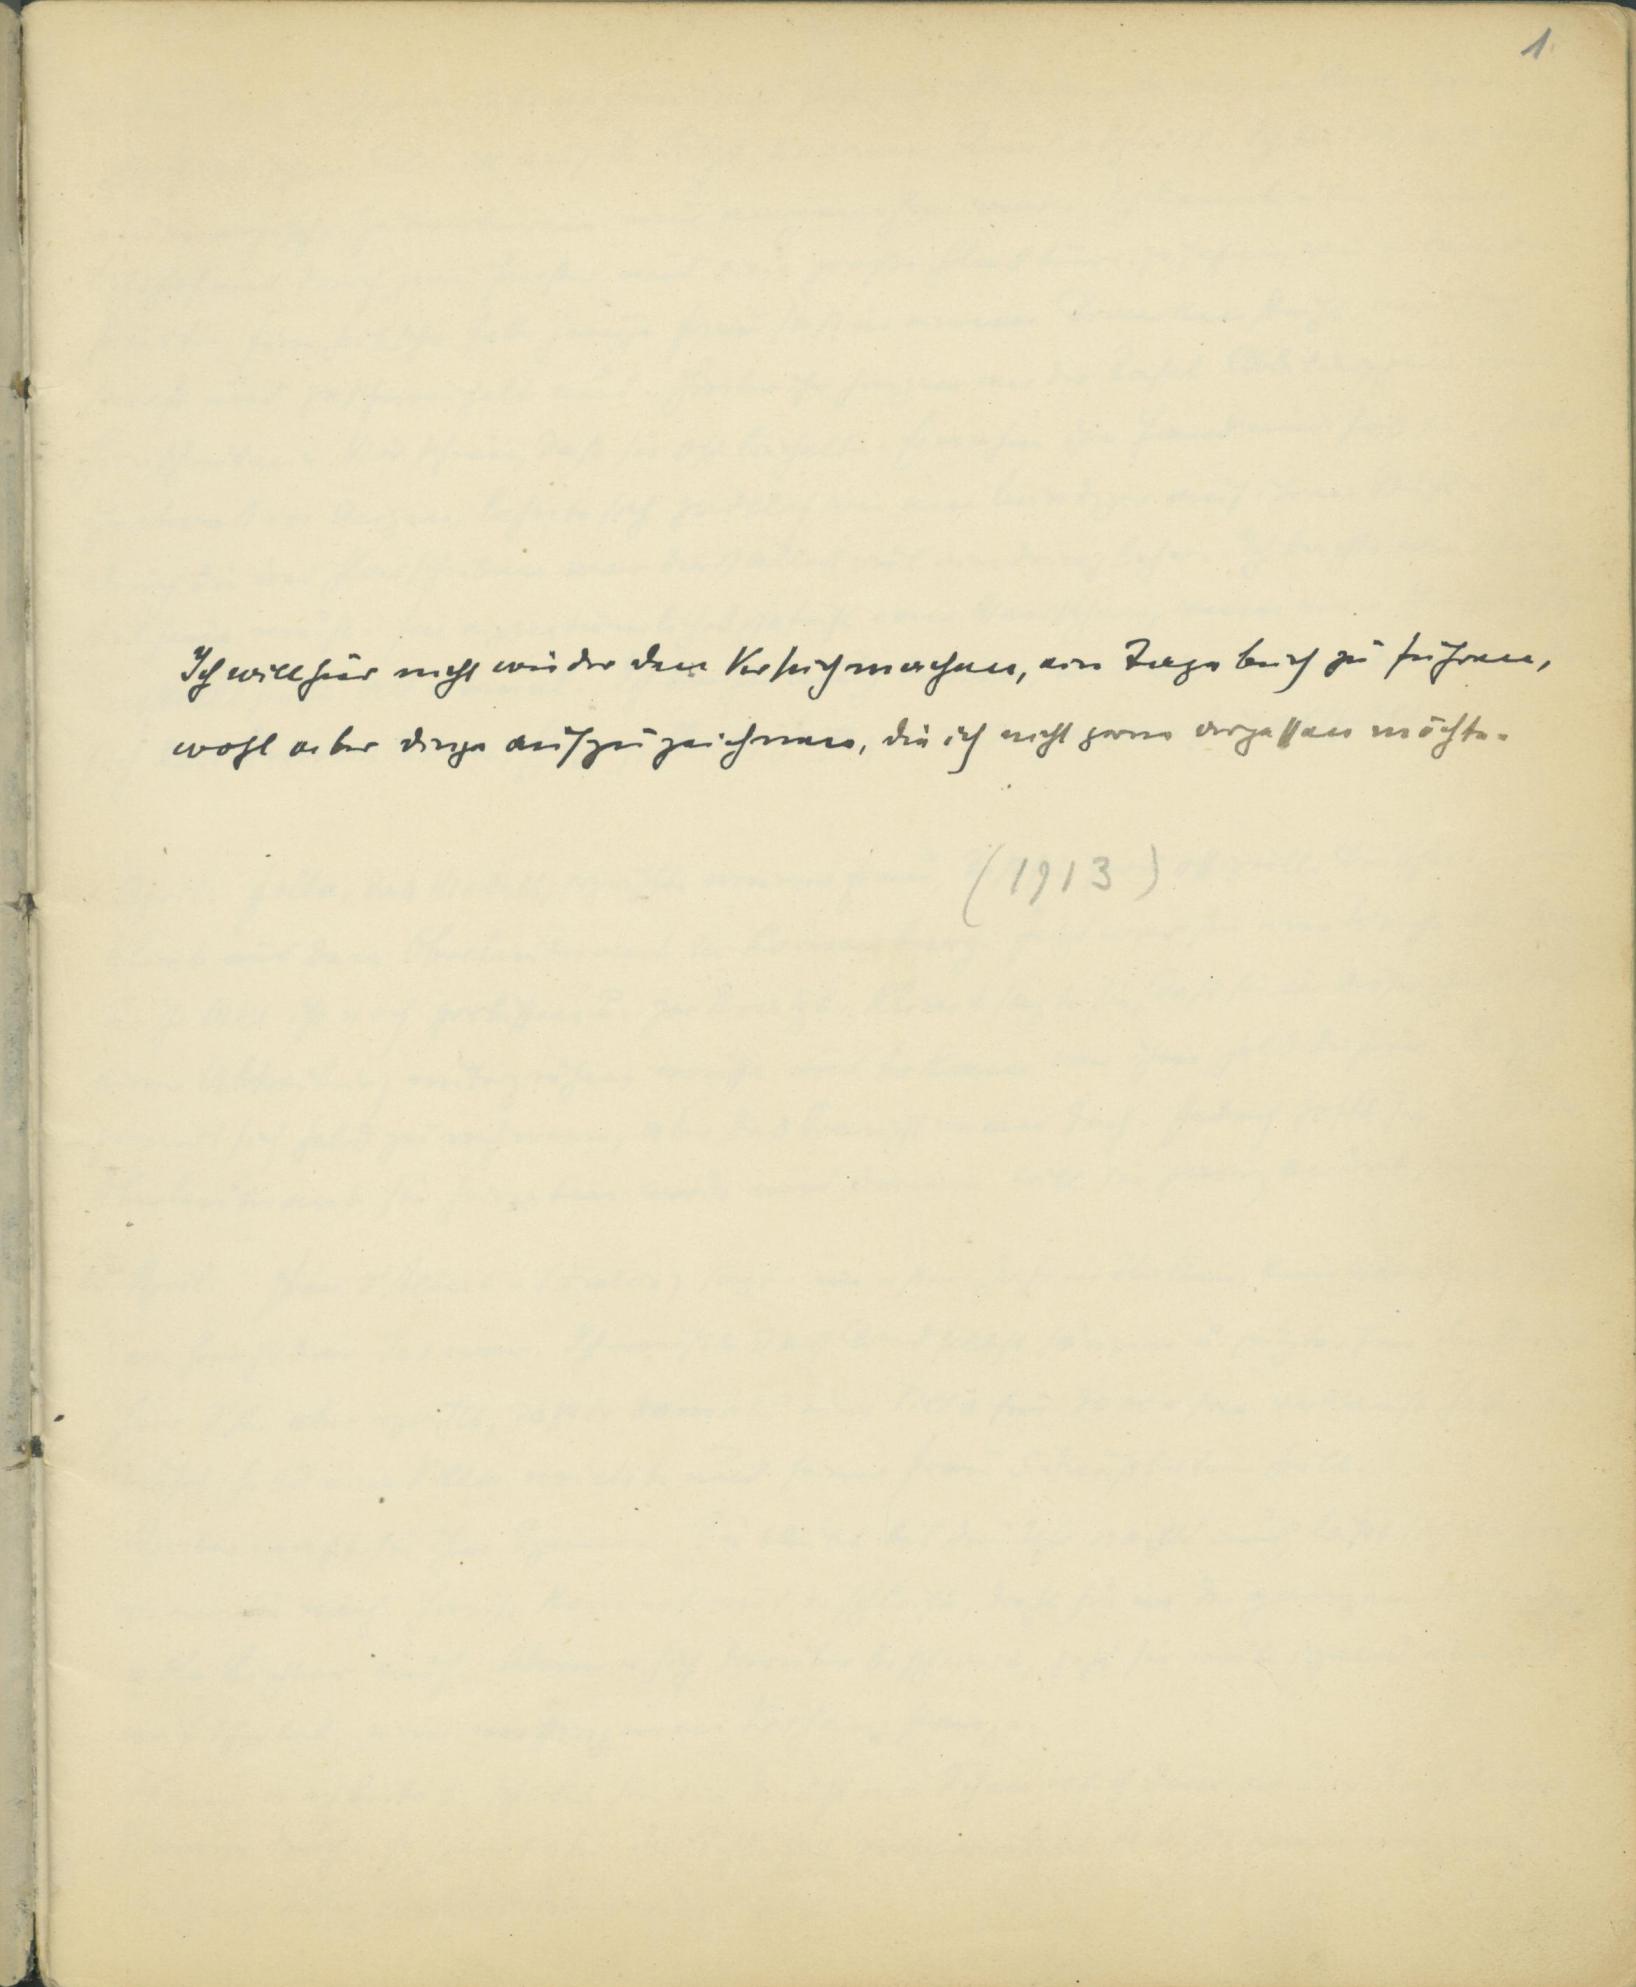 1
Ich will hier nicht wieder den Versuch machen, ein Tagebuch zu führen,
wohl aber dinge aufzuzeichnen, die ich nicht gern vergessen möchte.
(1913)